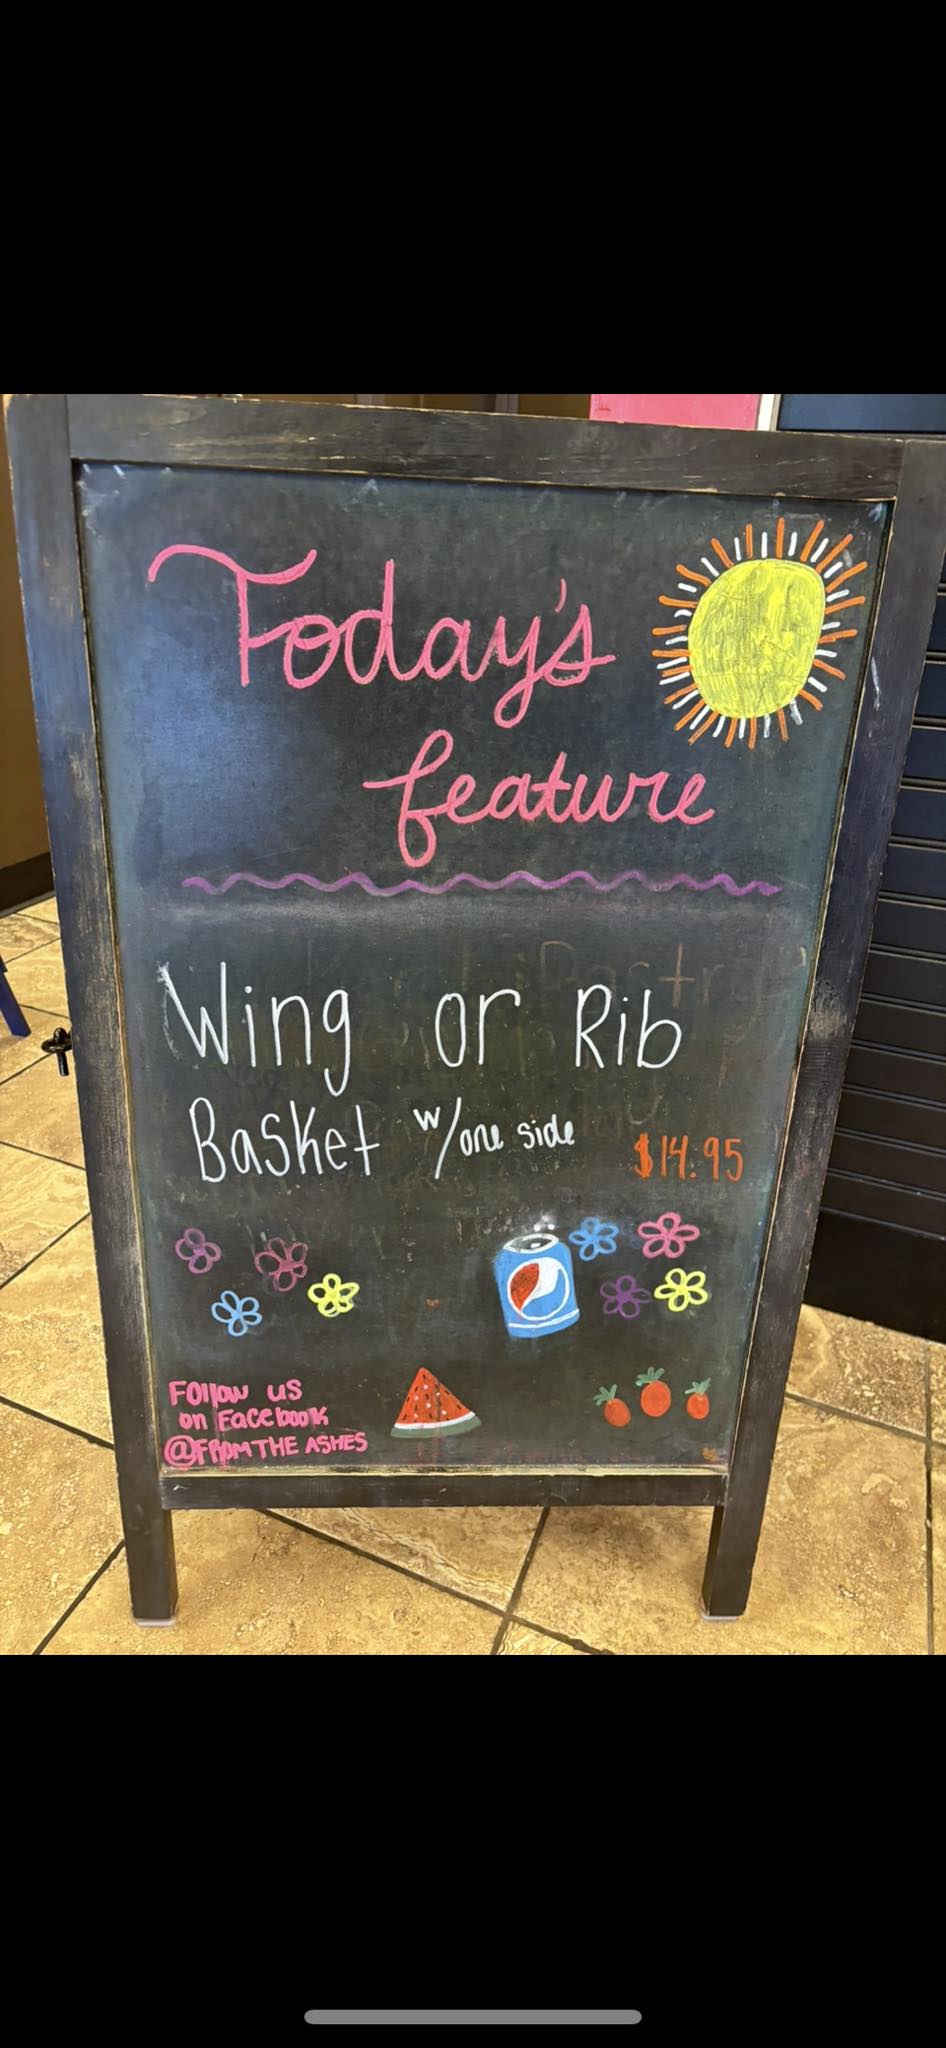 Today's
feature
Wing or Rib
Basket w/one side $14.95
Follow us
on Facebook
@FROMTHE ASHES